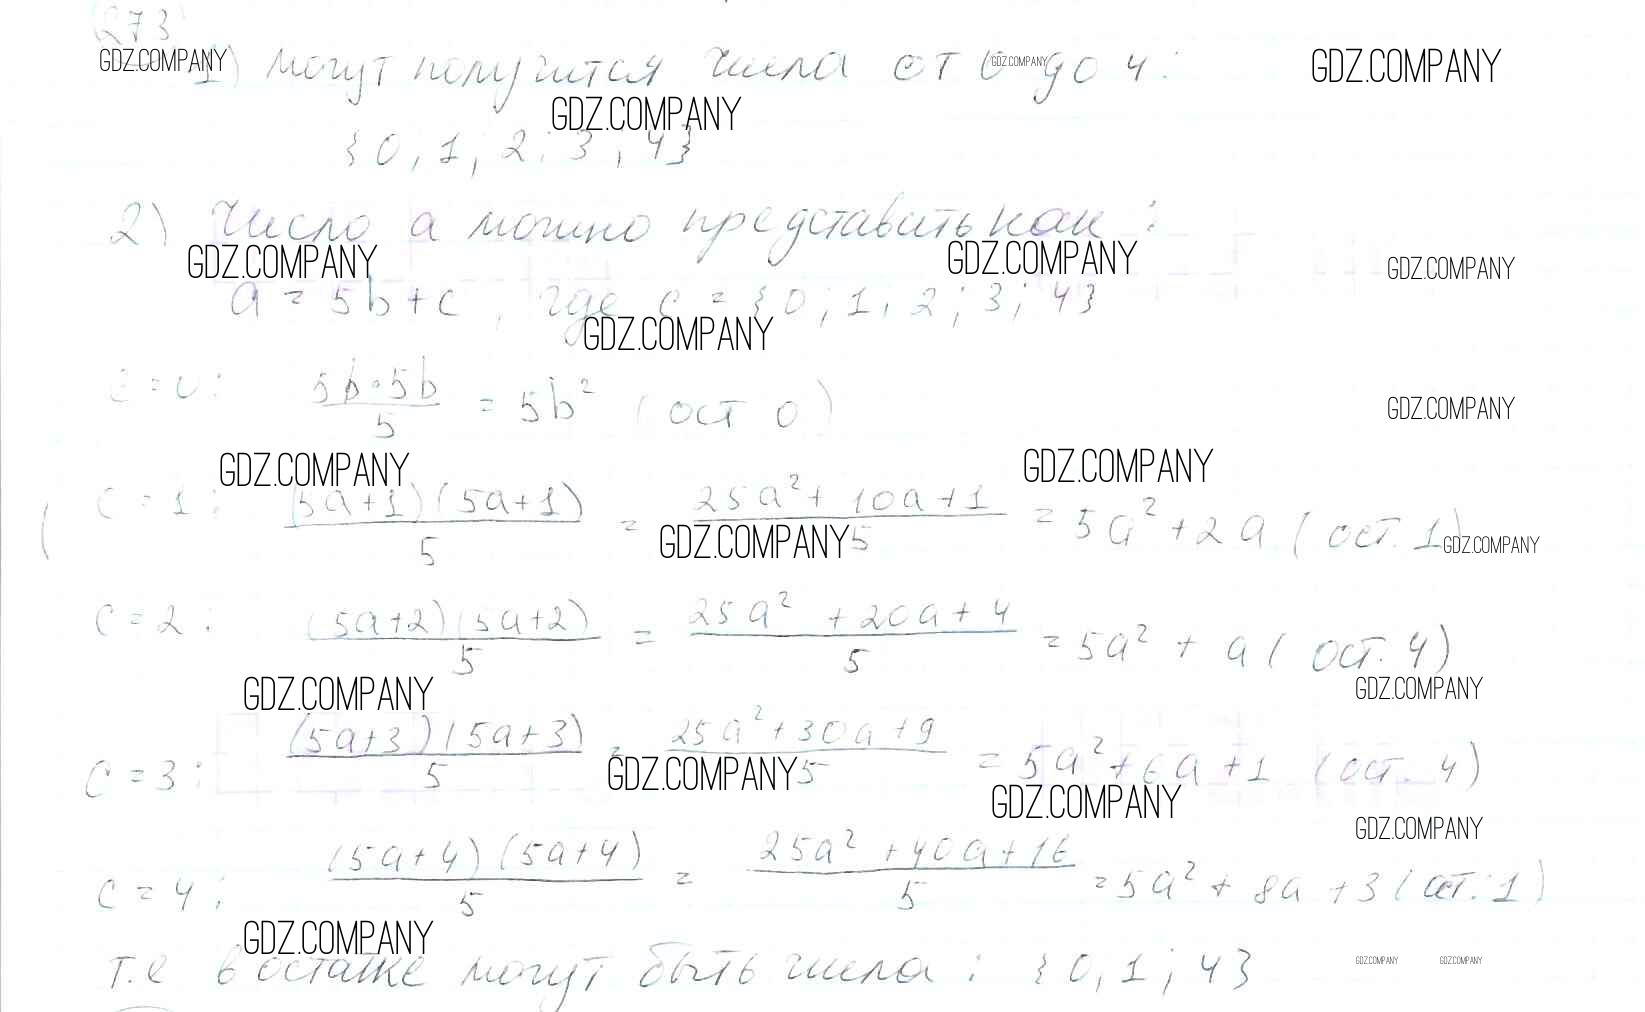 273
GDZ.COMPANY 1) могут получится числа от 0 GDZ.COMPANY до 4: GDZ.COMPANY
GDZ.COMPANY
{0; 1; 2; 3; 4}
2) Число а можно представить как:
GDZ.COMPANY GDZ.COMPANY GDZ.COMPANY
a = 5b + c, где c = {0; 1; 2; 3; 4}
GDZ.COMPANY
c = 0: 5b·5b / 5 = 5b² (ост 0) GDZ.COMPANY
GDZ.COMPANY GDZ.COMPANY
c = 1: (5a+1)(5a+1) / 5 = 25a² + 10a + 1 / 5 = 5a² + 2a (ост. 1) GDZ.COMPANY
GDZ.COMPANY
c = 2: (5a+2)(5a+2) / 5 = 25a² + 20a + 4 / 5 = 5a² + a (ост. 4)
GDZ.COMPANY GDZ.COMPANY
c = 3: (5a+3)(5a+3) / 5 = 25a² + 30a + 9 / 5 = 5a² + 6a + 1 (ост. 4)
GDZ.COMPANY GDZ.COMPANY GDZ.COMPANY
c = 4: (5a+4)(5a+4) / 5 = 25a² + 40a + 16 / 5 = 5a² + 8a + 3 (ост. 1)
GDZ.COMPANY
т.е в остатке могут быть числа: {0; 1; 4} GDZ.COMPANY GDZ.COMPANY